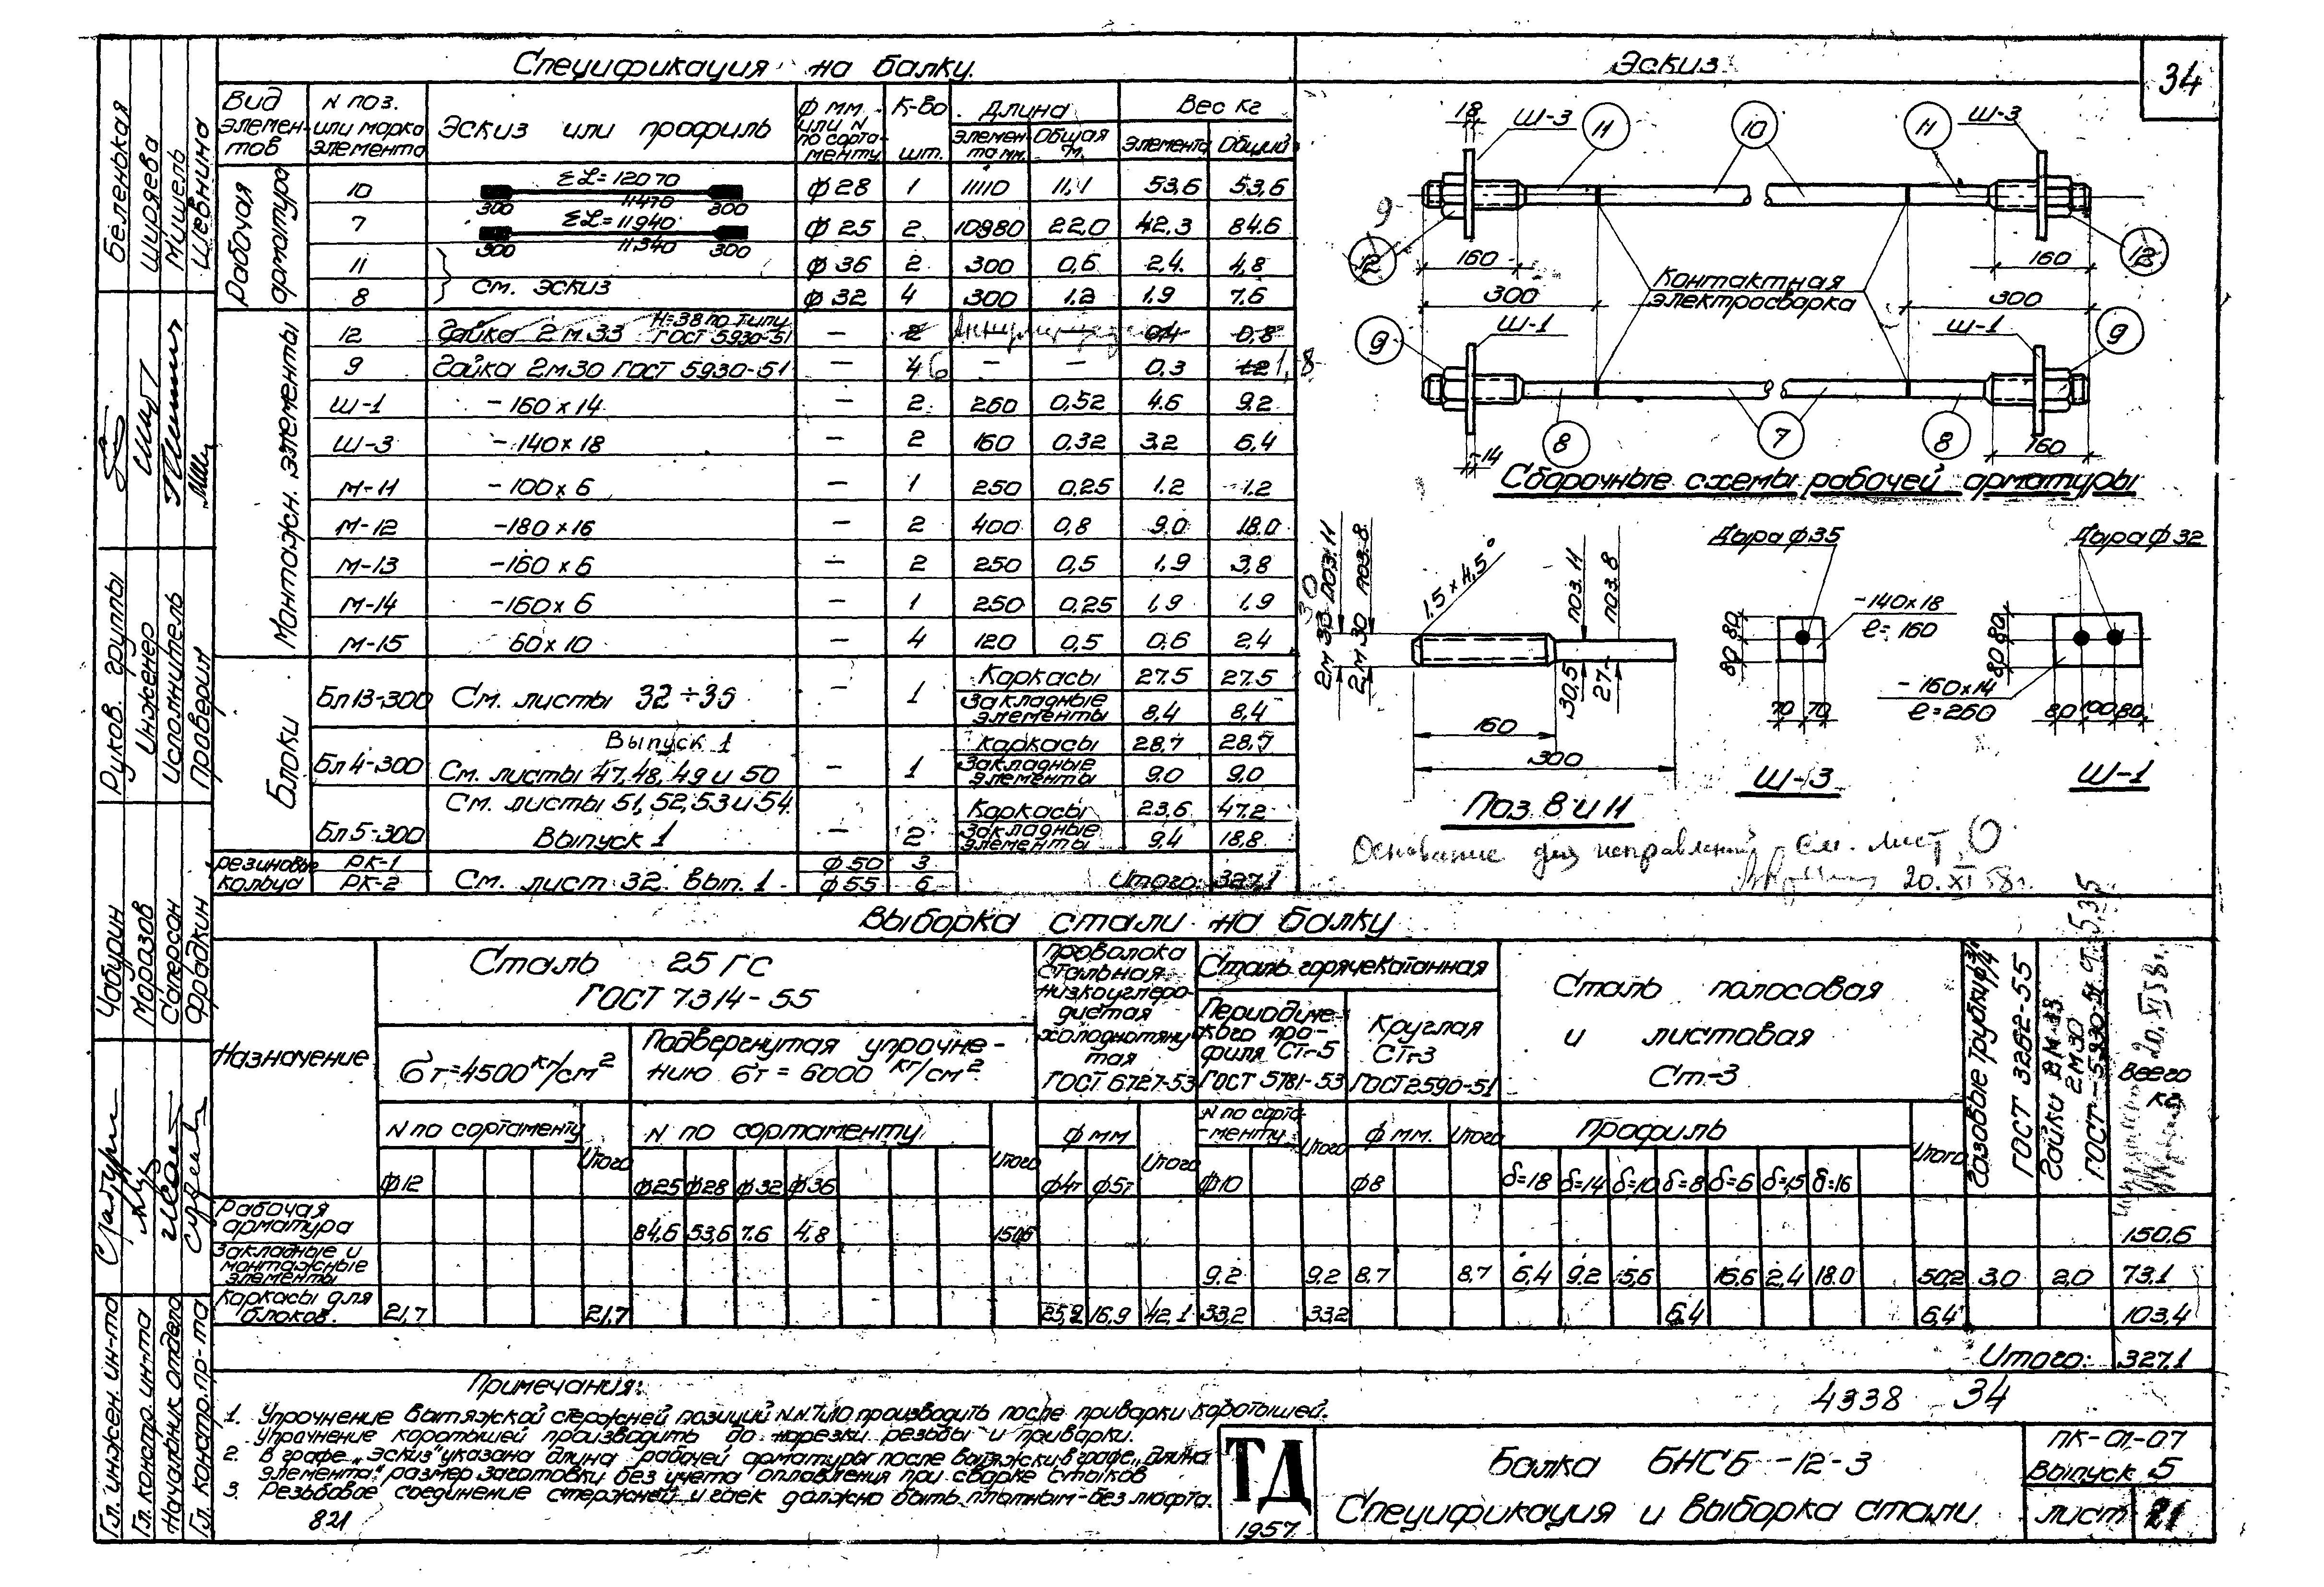 Спецификация на балку.
Эскиз
34
Вид элемен-тов
N поз. или марка элемента
Эскиз или профиль
ф мм. или N по сорта-менту
К-во шт.
Длина
Элемен-та мм.
Общая м.
Вес кг
Элемента
Общий
Рабочая арматура
10 Σℒ=12070 11470 300 300 ф28 1 11110 11,1 53,6 53,6
7 Σℒ=11940 11340 300 300 ф25 2 10980 22,0 42,3 84.6
11 ф36 2 300 0,6 2,4. 4,8
См. эскиз
8 ф32 4 300 1.2 1.9 7.6
Монтажн. элементы
12 Гайка 2м33 H=38 по типу ГОСТ 5930-51 — 2 0,4 0,8
9 Гайка 2м30 ГОСТ 5930-51 — 4 6 — — 0.3 1.2 1,8
Ш-1 -160×14 — 2 260 0,52 4.6 9.2
Ш-3 -140×18 — 2 160 0,32 3.2 6,4
М-11 -100×6 — 1 250 0,25 1.2 1.2
М-12 -180×16 — 2 400 0,8 9.0 18.0
М-13 -160×6 — 2 250 0,5 1,9 3,8
М-14 -160×6 — 1 250 0,25 1,9 1,9
М-15 60×10 — 4 120 0,5 0,6 2,4
Блоки
Бл13-300 См. листы 32÷35 — 1 Каркасы 27.5 27.5
Закладные элементы 8,4 8,4
Выпуск 1
Бл4-300 См. листы 47,48,49 и 50 — 1 Каркасы 28,7 28,7
Закладные элементы 9.0 9.0
См. листы 51,52,53 и 54.
Бл5-300 Выпуск 1 — 2 Каркасы 23,6 47.2
Закладные элементы 9,4 18,8
резиновые кольца
РК-1 ф50 3
РК-2 См. лист 32. Вып. 1 ф55 6 Итого: 327,1
18 Ш-3 11 10 11 Ш-3
9
12 160 160 12
300 Контактная электросварка 300
9 Ш-1 Ш-1 9
8 7 8
14 160
Сборочные схемы рабочей арматуры
2м 33 поз.11
30
2м 30 поз.8
1.5×4,5°
поз.11
поз.8
30,5
27
160
300
Поз. 8 и 11
Дыра ф35
80 80
70 70
-140×18
ℓ=160
Ш-3
Дыра ф32
80 80
-160×14
ℓ=260
80 100 80
Ш-1
Основание для исправлений см. лист О
20.XI 58г.
Выборка стали на балку
Назначение
Сталь 25ГС
ГОСТ 7314-55
σт=4500 кг/см²
Подвергнутая упрочне-нию σт = 6000 кг/см²
Проволока стальная низкоуглеро-дистая холоднотянутая ГОСТ 6727-53
Сталь горячекатанная
Периодиче-кого про-филя Ст-5 ГОСТ 5781-53
Круглая Ст-3 ГОСТ 2590-51
Сталь полосовая и листовая Ст-3
Газовые трубки ф3/4
ГОСТ 3262-55
Гайки 2М33
2М30
ГОСТ-5930-51
20.XI 58г.
Всего кг
N по сортаменту Итого
N по сортаменту Итого
ф мм Итого
N по сорта-менту Итого
ф мм. Итого
Профиль Итого
ф12 ф25 ф28 ф32 ф36 ф4т ф5т ф10 ф8 δ=18 δ=14 δ=10 δ=8 δ=6 δ=15 δ=16
Рабочая арматура 84,6 53,6 7.6 4,8 150,6 150.6
Закладные и монтажные элементы 9.2 9.2 8.7 8.7 6,4 9.2 5,6 16.6 2,4 18.0 50,2 3,0 2,0 73.1
Каркасы для блоков. 21,7 21,7 25,2 16,9 42,1 33,2 33,2 6.4 6,4 103,4
Итого: 327.1
Примечания:
1. Упрочнение вытяжкой стержней позиций N.N. 7 и 10 производить после приварки коротышей.
Упрочнение коротышей производить до нарезки резьбы и приварки.
2. В графе „Эскиз" указана длина рабочей арматуры после вытяжки, в графе „Длина
элемента" размер заготовки без учета оплавления при сварке стыков
3. Резьбовое соединение стержней и гаек должно быть плотным-без люфта.
821
4338 34
ТД
1957
Балка БНСБ-12-3
Спецификация и выборка стали
ПК-01-07
Выпуск 5
лист 21
Гл. инжен. ин-та Чабурин
Гл. констр. ин-та Моразов
Начальник отдела Саперсон
Гл. констр. пр-та Фрадкин
Руков. группы Беленькая
Инженер Ширяева
Исполнитель Мишель
Проверил Шевнина